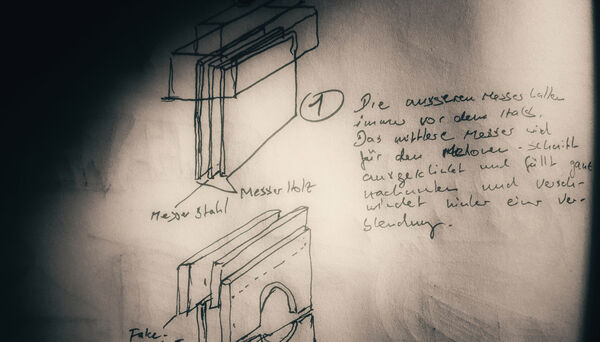 1
Die äusseren Messer halten
immer vor dem Hals.
Das mittlere Messer wird
für den Melonen-schnitt
ausgeklinkt und fällt ganz
nach unten und versch-
windet hinter einer Ver-
blendung.
Messer Stahl
Messer Holz
Fake-